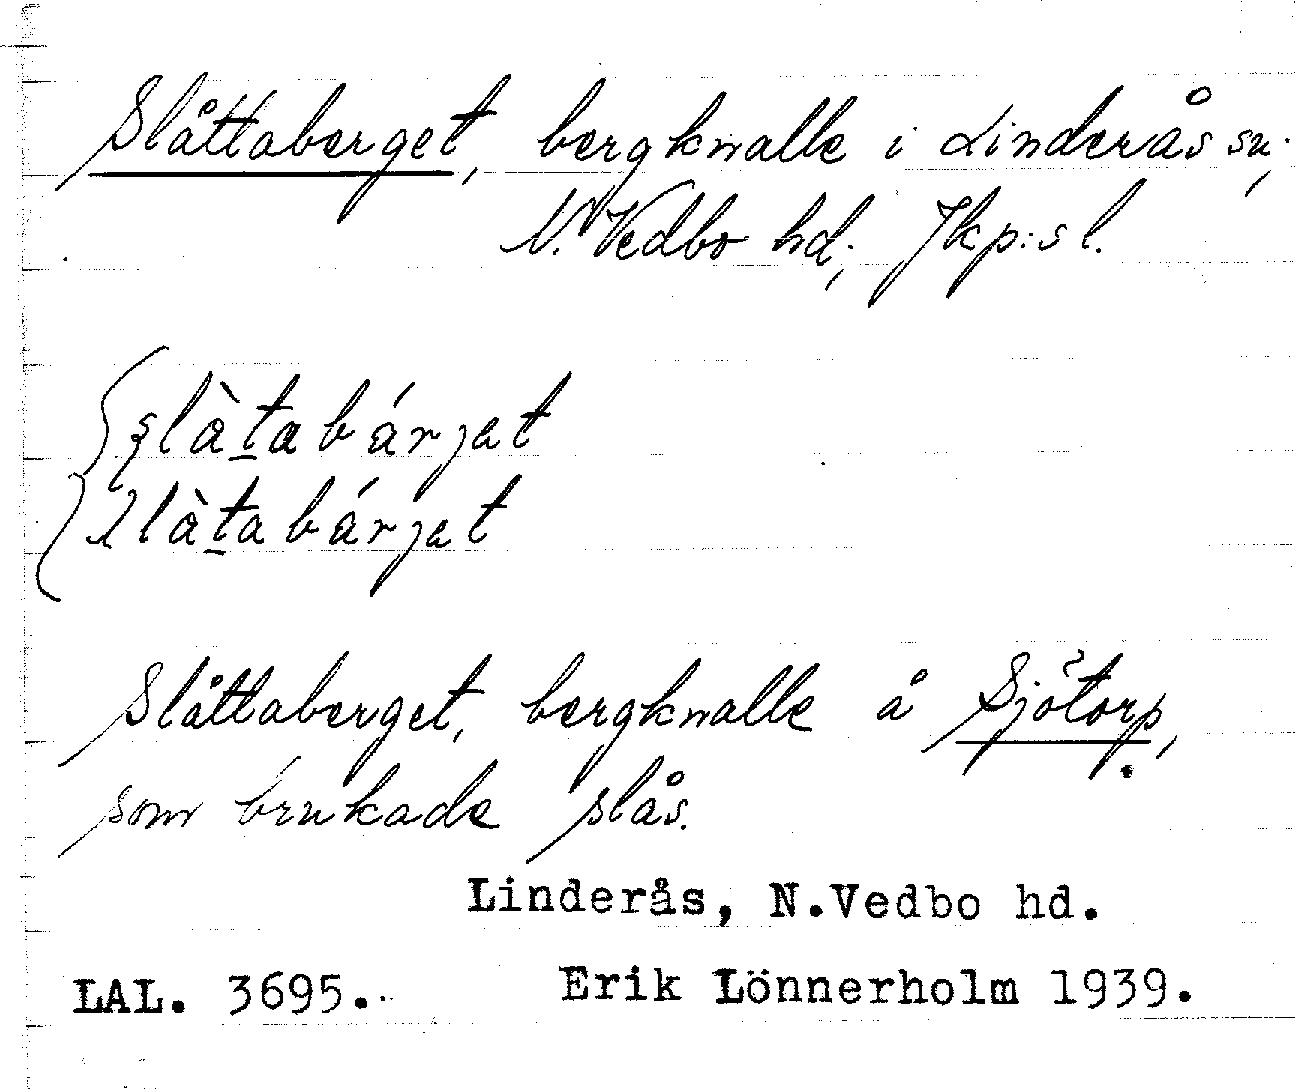 Slåttaberget, bergknalle i Linderås sn,
N. Vedbo hd, Jkp:s l.
slàtabárjet
slàtabárjet
Slåttaberget, bergknalle å Sjötorp,
som brukade slås.
Linderås, N.Vedbo hd.
LAL. 3695. Erik Lönnerholm 1939.